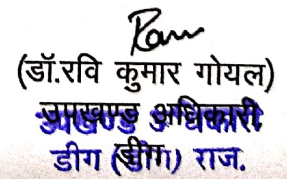 (डॉ.रवि कुमार गोयल)
उपखण्ड अधिकारी
डीग (डीग) राज.